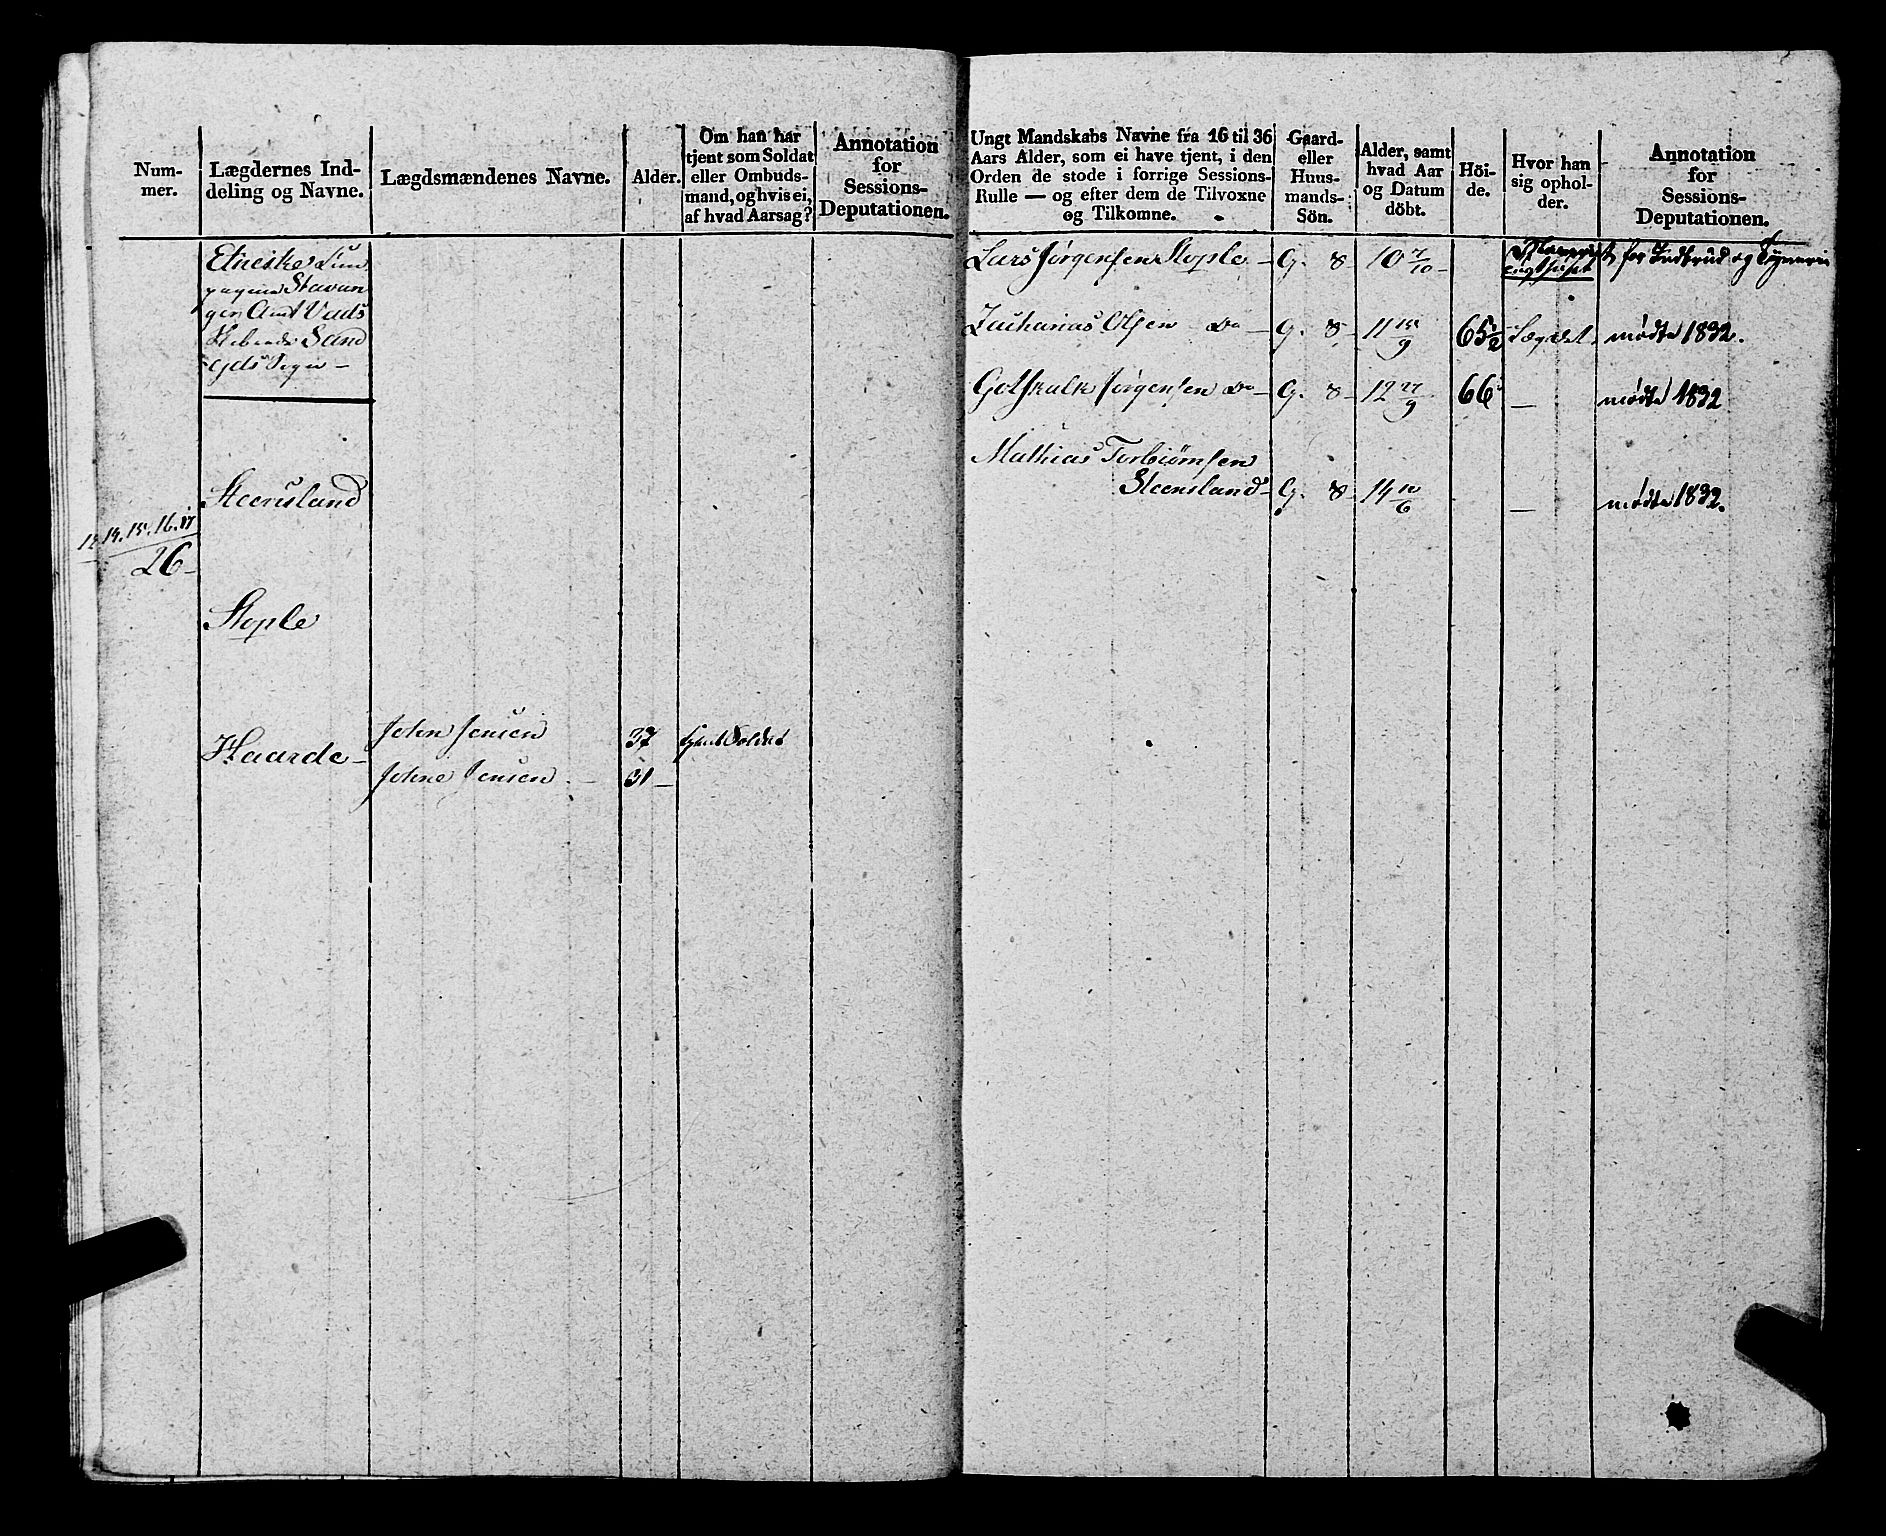 Num-
mer.
Lægdernes Ind-
deling og Navne.
Lægdsmændenes Navne.
Alder.
Om han har
tjent som Soldat
eller Ombuds-
mand, og hvis ei,
af hvad Aarsag?
Annotation
for
Sessions-
Deputationen.
Etneske Kum
pagnie Stavan
ger Amt Vads
Sand
Sogn —
Steensland
14. 15. 16. 17
26 —
Stople
Haarde —
John Jensen
37
tjent Soldat
Johne Jensen —
31 —
Ungt Mandskabs Navne fra 16 til 36
Aars Alder, som ei have tjent, i den
Orden de stode i forrige Sessions-
Rulle — og efter dem de Tilvoxne
og Tilkomne.
Gaard-
eller
Huus-
mands-
Sön.
Alder, samt
hvad Aar
og Datum
döbt.
Höi-
de.
Hvor han
sig ophol-
der.
Annotation
for
Sessions-
Deputationen.
Lars Jørgensen Stople —
G. 8 —
10 7/10 —
for Indbrud og Tyverie
Zacharias Olsen Do —
G. 8 —
11 15/9
65 1/2
Lægdet.
mødte 1832.
Gotskalk Jørgensen Do —
G. 8 —
12 27/9
66
—
mødte 1832
Mathias Torbiørnsen
Steensland —
G. 8 —
14 10/6
—
mødte 1832.